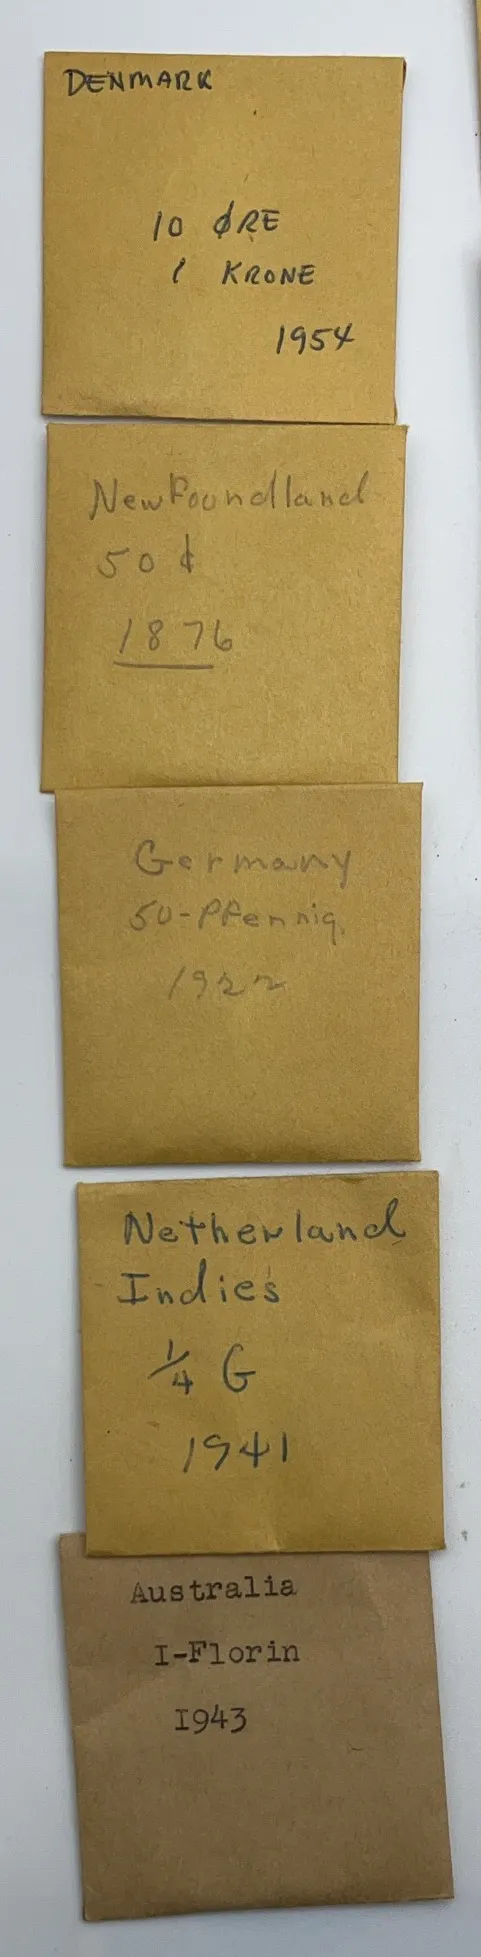 DENMARK
10 ØRE
1 KRONE
1954
NewFoundland
50 ¢
1876
Germany
50-Pfennig.
1922
Netherland
Indies
1/4 G
1941
Australia
I-Florin
I943